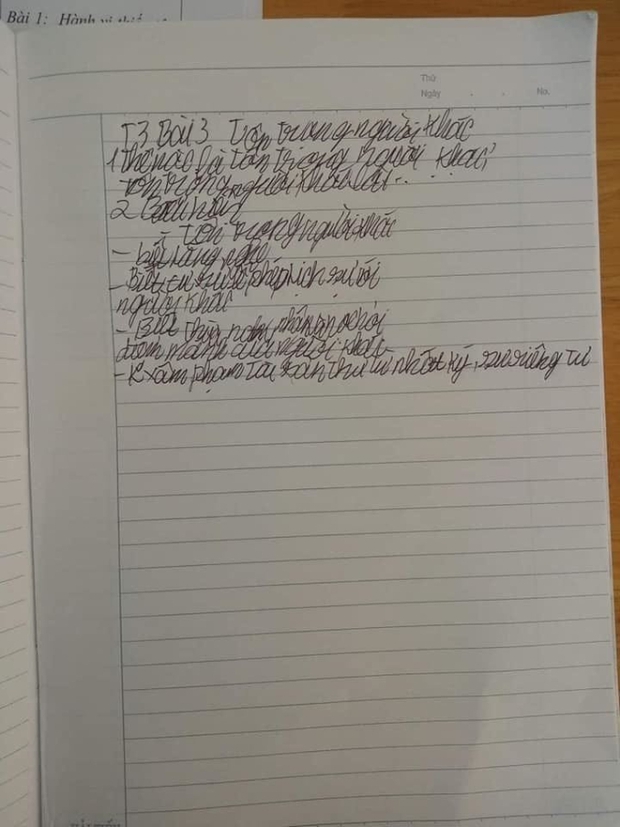 Bài 1: Hành vi
Thứ
Ngày . . No.
T3 Bài 3 Tôn trọng người khác
1 Thế nào là tôn trọng người khác?
tôn trọng người khác là...
2
- Tôn trọng người khác
- biết lắng nghe
- Biết cư xử lễ phép lịch sự với
người khác
- Biết thừa nhận
điểm mạnh của người khác
- K xâm phạm tài sản thư từ nhật ký, sự riêng tư